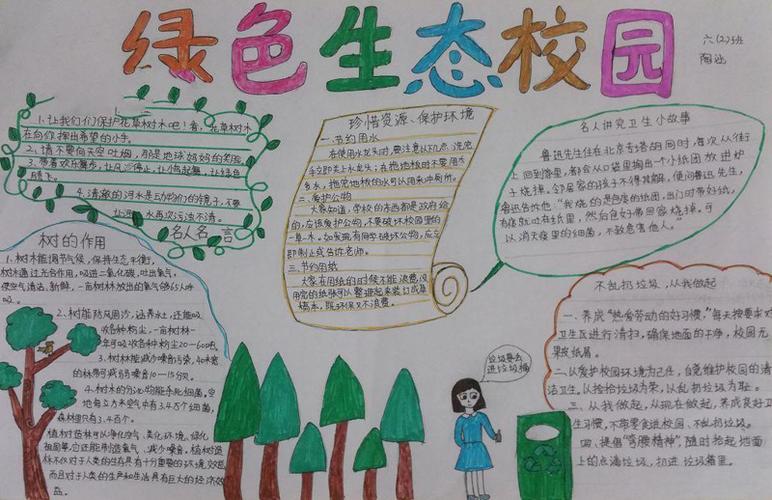 绿色生态校园
六(2)班
陶
1.让我们们保护花草树木吧!看,花草树木
在向你挥出希望的小手。
2、请不要向天空吐烟,那是地球妈妈的笑脸
3、带着欢乐舞步,让风沙停止,让小鸟起舞,让绿色
飞。
4、清澈的河水是动物们的镜子,不要
让河水再次污浊不清。
名人名言
珍惜资源、保护环境
一、节约用水
在使用水龙头时,要注意以下几点:洗完
后立即关上水龙头;在拖地板时不要用太
多水,拖完地板的水可以用来冲厕所。
二、爱护公物
大家知道,学校的东西都是政府给
的,应该爱护公物,不要破坏校园里的
一草一木。如发现有同学破坏公物,应立
即制止或告诉老师。
三、节约用纸
大家在用纸的时候不能浪费,没
用完的纸张可以整理起来装订成草
稿本,既环保又不浪费。
名人讲究卫生小故事
鲁迅先生住在北京寺塔的同时,每次从街
上回到宿里,都会从口袋里掏出一个小纸团放进炉
子烧掉。邻居家的孩子不得其解,便问鲁迅先生,
鲁迅告诉他:"我烧的是包痰的纸团,出门时带好纸,
有痰就吐在纸里,然后包好带回家烧掉。可
以消灭痰里的细菌,不致危害他人。"
树的作用
1.树木能调节气候,保持生态平衡,
树木通过光合作用,吸进二氧化碳,吐出氧气,
使空气清洁、新鲜,一亩树林放出的氧气够65人呼
吸。
2、树林能防风固沙,涵养水土,还能吸
收各种粉尘,一亩树林一
年可吸收各种粉尘20—60吨。
3、树林能减少噪音污染,40米宽
的林带可减弱噪音10—15分贝。
4.树木的分泌物能杀死细菌,空
地每立方米空气中有3.4万个细菌,
森林里只有3.4百个。
植树造林可以净化空气、美化环境、绿化
祖国等,它还能制造氧气、减少噪音。植树造
林不仅对于人类的生存具有十分重要的环境效应,
而且对于人类的生产和生活具有巨大的经济效
益。
垃圾要丢
进垃圾桶
不乱扔垃圾,从我做起
一、养成"热爱劳动的好习惯"每天按要求对
卫生区进行清扫,确保地面的干净,校园无
果皮纸屑。
二、以爱护校园环境为己任,自觉维护校园的清
洁卫生。以捡拾垃圾为荣,以乱扔垃圾为耻。
三、从我做起,从现在做起,养成良好卫
生习惯,不带零食进校园、不乱扔垃圾。
四、提倡"弯腰精神",随时拾起地面
上的点滴垃圾,扔进垃圾箱里。